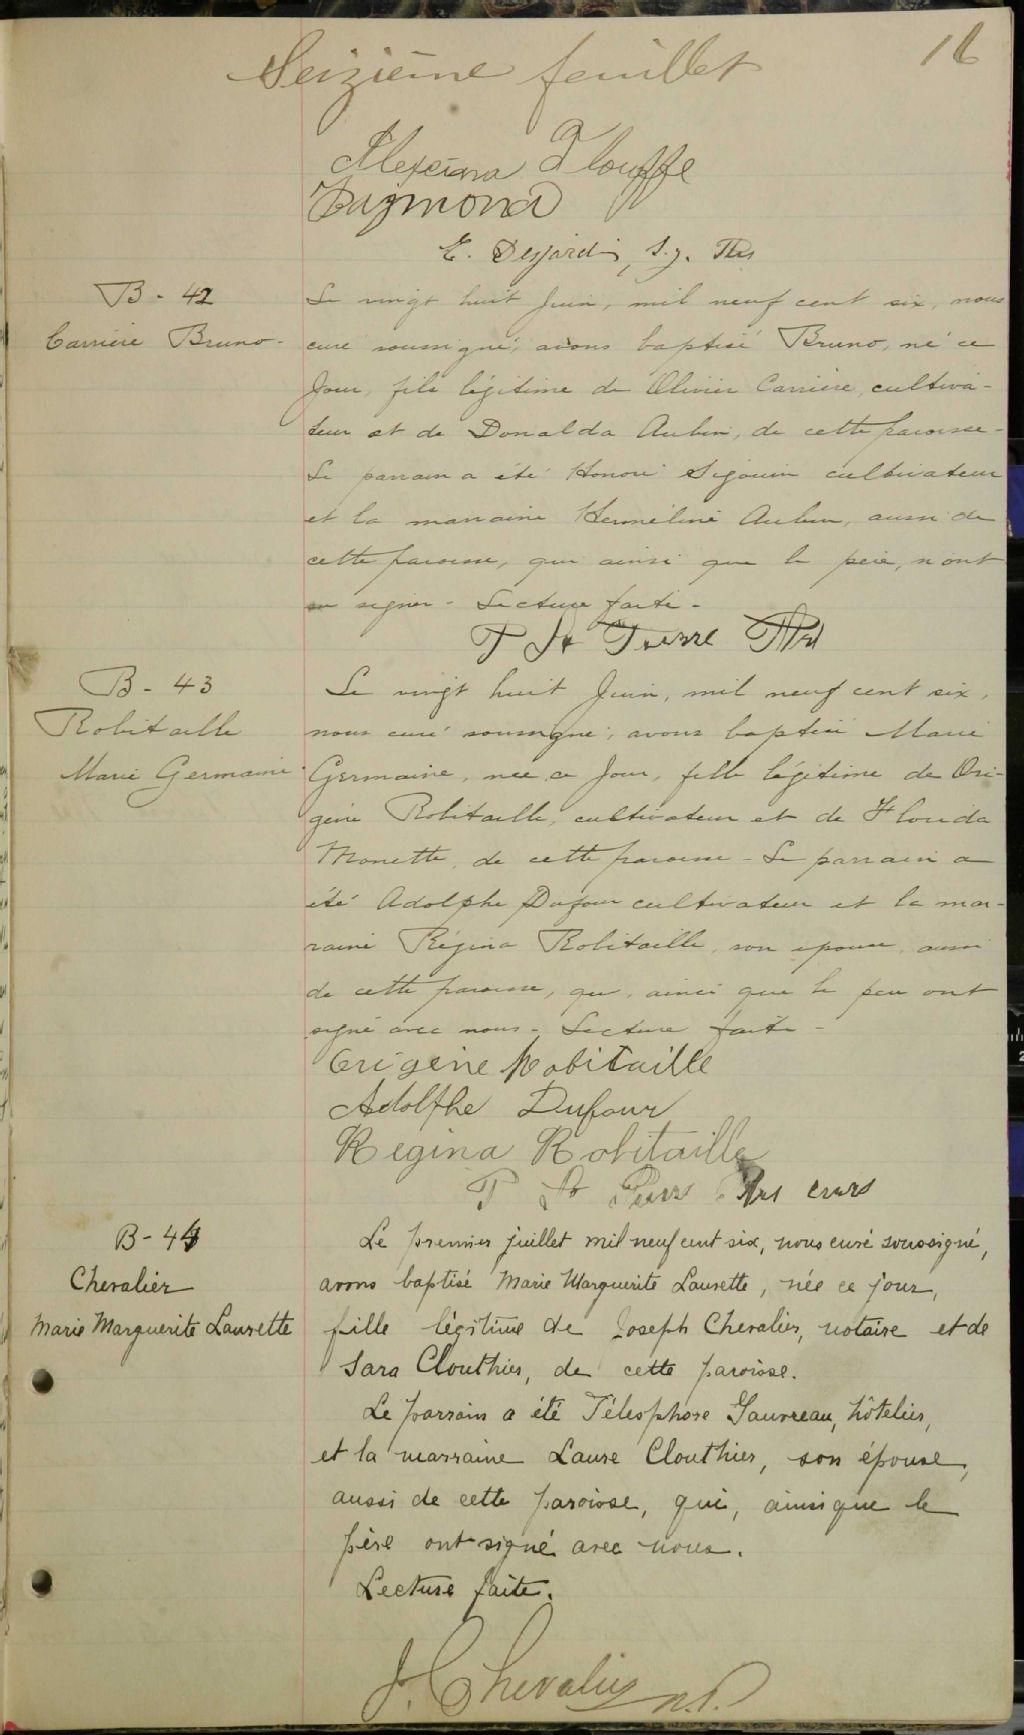 16
Seizième feuillet
Alexina Plouffe
Raymond
E. Desjardi, s.j. Ptre
B - 42
Carrière Bruno -
Le vingt huit Juin, mil neuf cent six, nous
curé soussigné, avons baptisé Bruno, né ce
Jour, fils légitime de Olivier Carrière, cultiva-
teur et de Donalda Aubin, de cette paroisse -
Le parrain a été Honoré Sigouin cultivateur
et la marraine Herméline Aubin, aussi de
cette paroisse, qui ainsi que le père, n'ont
su signer - Lecture faite -
P St Pierre Ptre
B - 43
Robitaille
Marie Germaine
Le vingt huit Juin, mil neuf cent six,
nous curé soussigné, avons baptisé Marie
Germaine, née ce Jour, fille légitime de Ori-
gène Robitaille, cultivateur et de Florida
Monette, de cette paroisse - Le parrain a
été Adolphe Dufour cultivateur et la mar-
raine Régina Robitaille, son épouse, aussi
de cette paroisse, qui, ainsi que le père ont
signé avec nous - Lecture faite -
Origène Robitaille
Adolphe Dufour
Regina Robitaille
P St Pierre Ptre curé
B - 44
Chevalier
Marie Marguerite Laurette
Le premier juillet mil neuf cent six, nous curé soussigné,
avons baptisé Marie Marguerite Laurette, née ce jour,
fille légitime de Joseph Chevalier, notaire et de
Sara Clouthier, de cette paroisse.
Le parrain a été Télesphore Gauvreau, hôtelier,
et la marraine Laure Clouthier, son épouse,
aussi de cette paroisse, qui, ainsi que le
père ont signé avec nous.
Lecture faite.
J. Chevalier n.p.